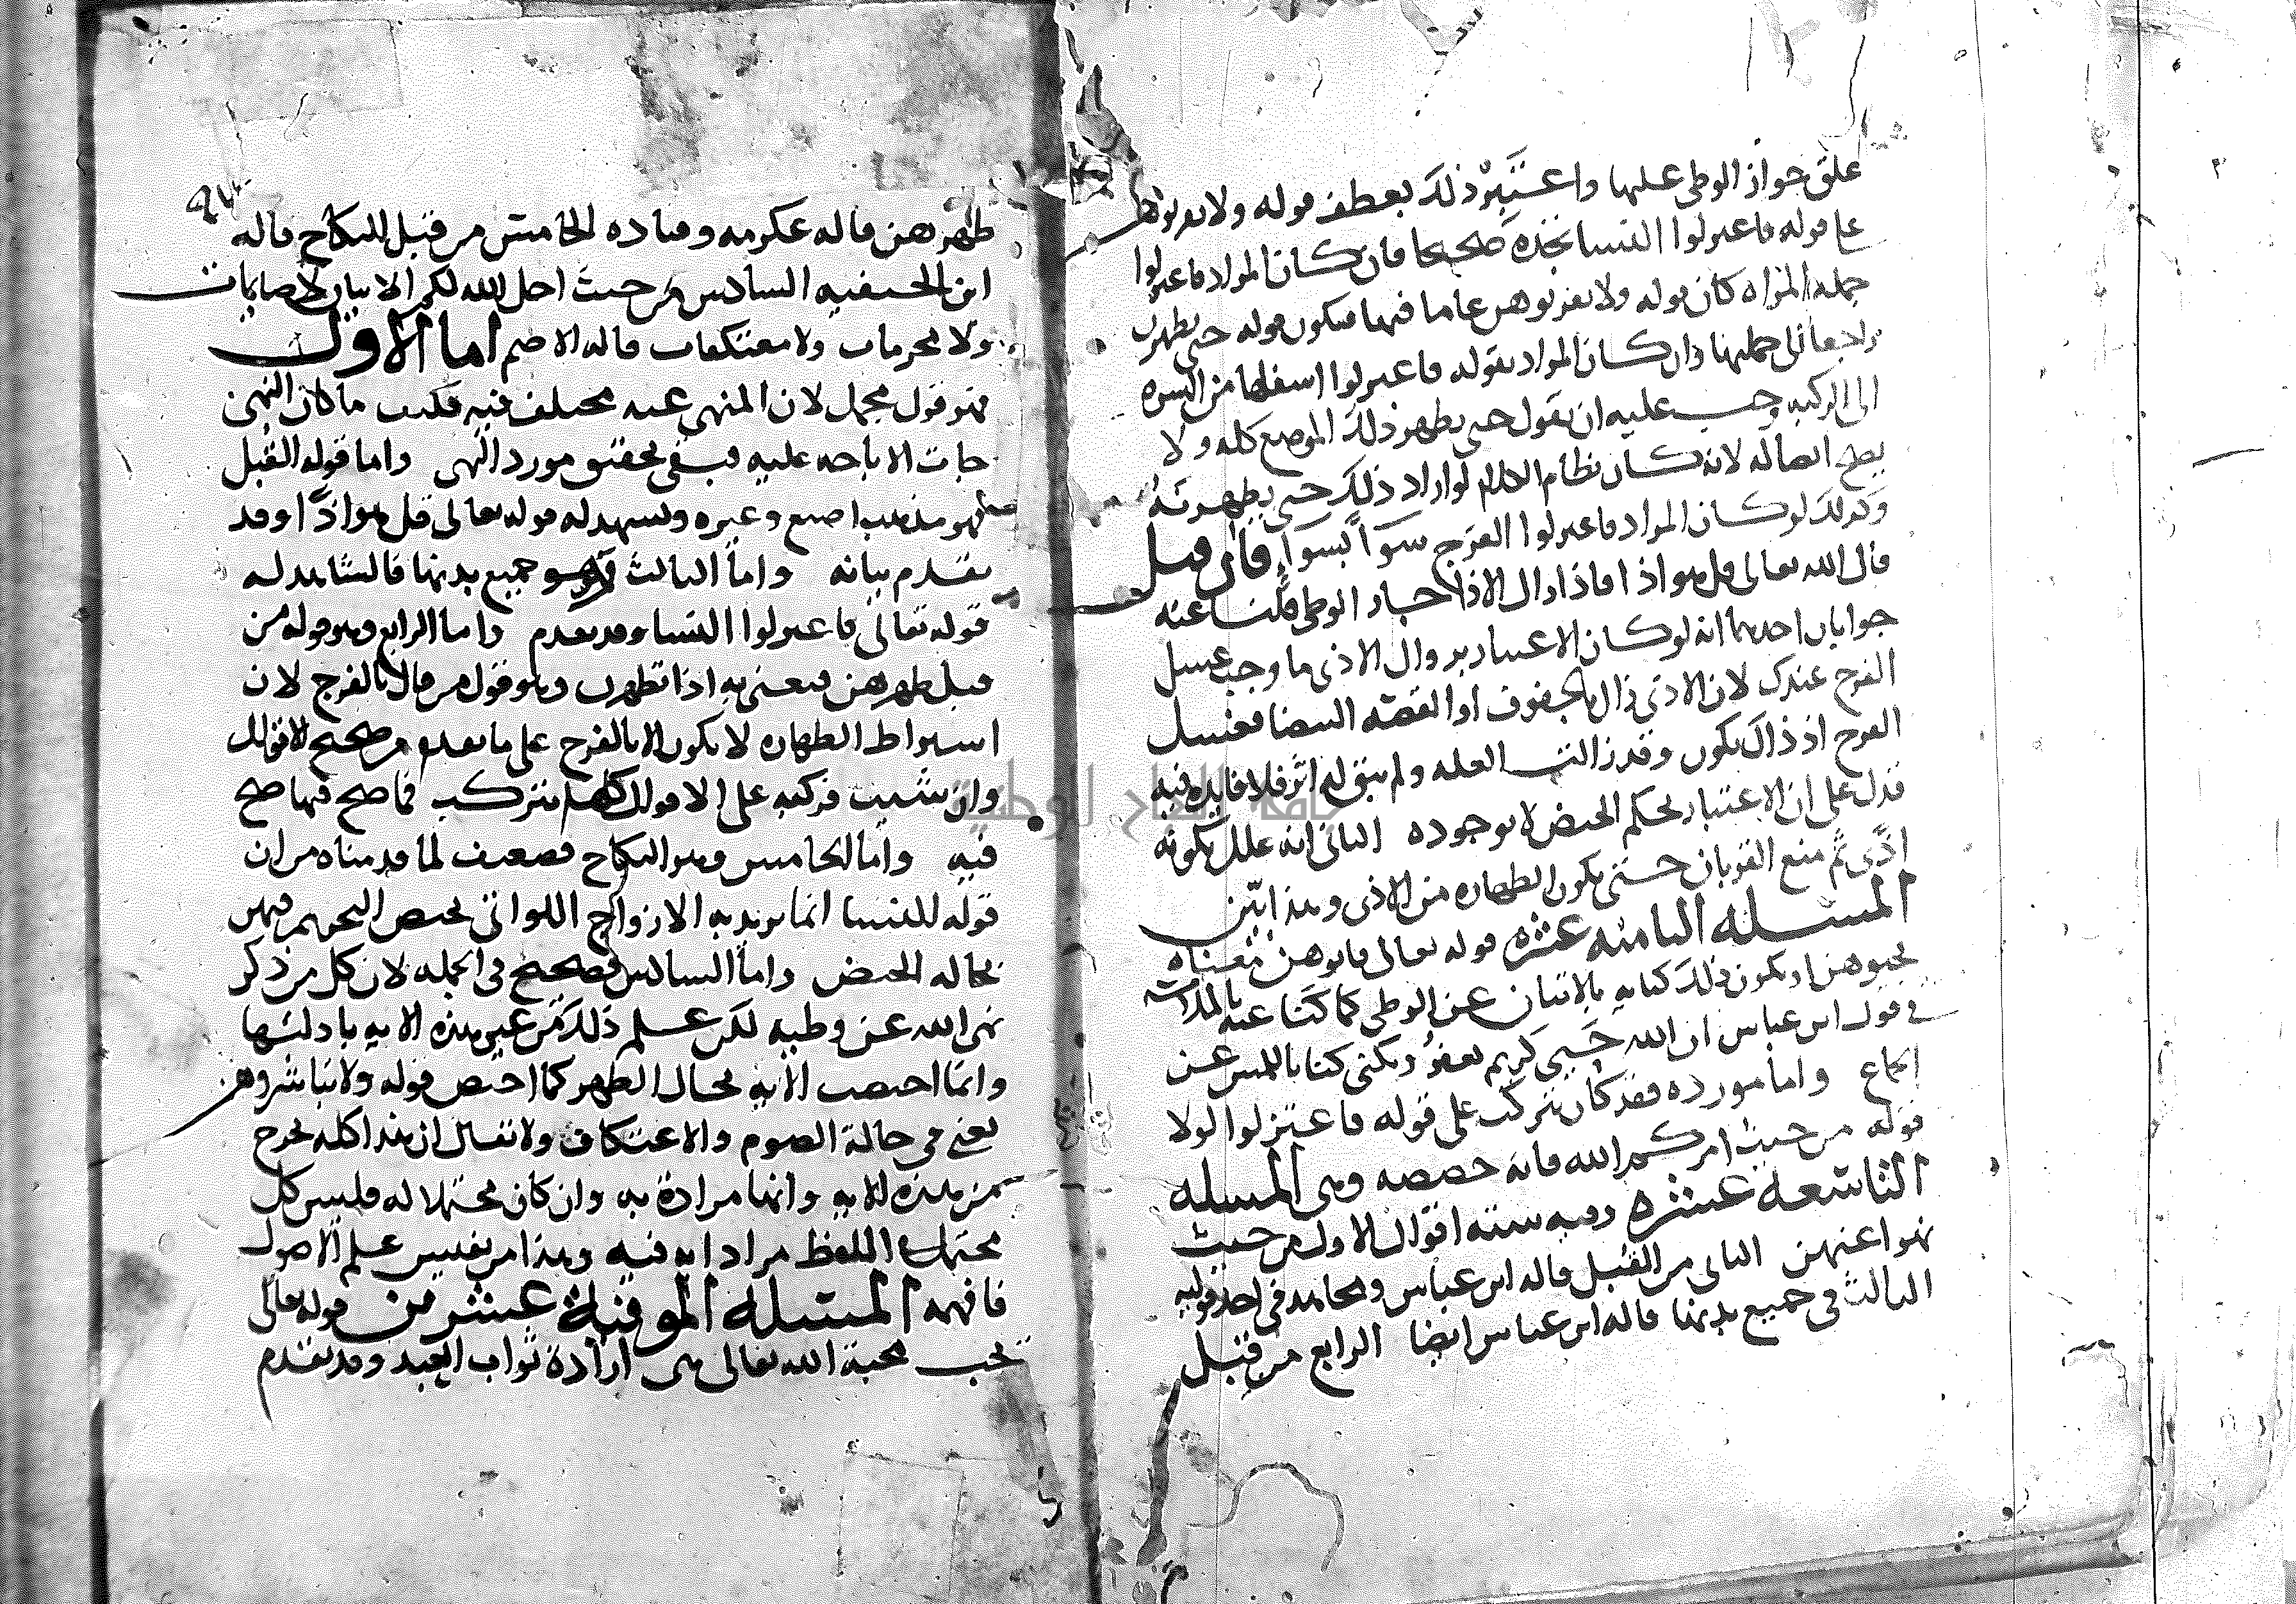 علق جواز الوطى عليها واعتبر ذلك بعطف قوله ولا تقربوهن
على قوله فاعتزلوا النسا تجده صحيحا فان كان المراد فاعتزلوا
جملة المراه كان قوله ولا تقربوهن عاما فيها فيكون قوله حتى يطهرن
راجعا الى جملتها وان كان المراد بقوله فاعتزلوا اسفلها من السره
الى الركبه وجب عليه ان يقول حتى يطهر ذلك الموضع كله ولا
يصح اتصاله لانه كان نظام الكلام لو اراد ذلك حتى يطهرنه
وكذلك لو كان المراد فاعتزلوا الفرج سوآ بسوآ فان قيل
قال الله تعالى قل هو اذا فاذا زال الاذا جاز الوطى قلنا عنه
جوابان احدهما انه لو كان الاعتبار بزوال الاذى ما وجب غسل
الفرج عندك لان الاذى زال بالجفوف او القصه البيضا فغسل
الفرج اذ ذاك يكون وقد زالت العله ولم يبق له اثر فلا فايده فيه
فدل على ان الاعتبار بحكم الحيض لا بوجوده الثانى انه علل بكونه
اذى ثم منع القربان حتى يكون الطهاره من الاذى وهذا ابين
المسله الثامنه عشره قوله تعالى فاتوهن معناه
فجيوهن او يكون ذلك كنايه بالاتيان عن الوطى كما كنا عنه بالملامسه
في قول ابن عباس ان الله حيى كريم يعفو ويكنى كنا باللمس عن
الجماع واما مورده فقد كان يتركب على قوله فاعتزلوا لولا
قوله من حيث امركم الله فانه خصصه وهى المسله
التاسعه عشره وفيه سته اقوال الاول من حيث
نهوا عنهن الثانى من القبل قاله ابن عباس ومجاهد في احد قوليه
الثالث في جميع بدنها قاله ابن عباس ايضا الرابع من قبل
طهرهن قاله عكرمه وقتاده الخامس من قبل النكاح قاله
ابن الحنفيه السادس من حيث احل الله لكم الاتيان لا صايمات
ولا محرمات ولا معتكفات قاله الاصم اما الاول
فهو قول مجمل لان المنهى عنه مختلف فيه فكيف ما كان النهى
جات الاباحه عليه فبقى تحقيق مورد النهى واما قوله القبل
فهو مذهب اصبغ وغيره ويشهد له قوله تعالى قل هو اذًا وقد
تقدم بيانه واما الثالث فهو جميع بدنها فالشاهد له
قوله تعالى فاعتزلوا النسا وقد تقدم واما الرابع وهو قوله من
قبل طهرهن فيعنى به اذا تطهرن وهو قول من قال بالفرج لان
اشتراط الطهاره لا يكون الا بالفرج على ما تقدم من صحيح الاقوال
وان شيت فركبه على الاقوال كلها يتركب فما صح فيها صح
فيه واما الخامس وهو النكاح فضعيف لما قدمناه من ان
قوله النسا انما يريد به الازواج اللواتى يختص التحريم فيهن
بحالة الحيض واما السادس فصحيح في الجمله لان كل من ذكر
نهى الله عن وطيه لكن علم ذلك من غير هذه الايه بادلتها
وانما اختصت الايه بحال الطهر كما اختص قوله ولا تباشروهن
يعنى في حالة الصوم والاعتكاف ولا تقال ان هذا كله يخرج
من هذه الايه وانها مرادة به وان كان محتملا له فليس كل
محتملات اللفظ مرادا به فيه وهذا من نفيس علم الاصول
فافهمه المسله الموفية عشرين قوله تعالى
يحب محبة الله تعالى هى ارادة ثواب العبد وقد تقدم